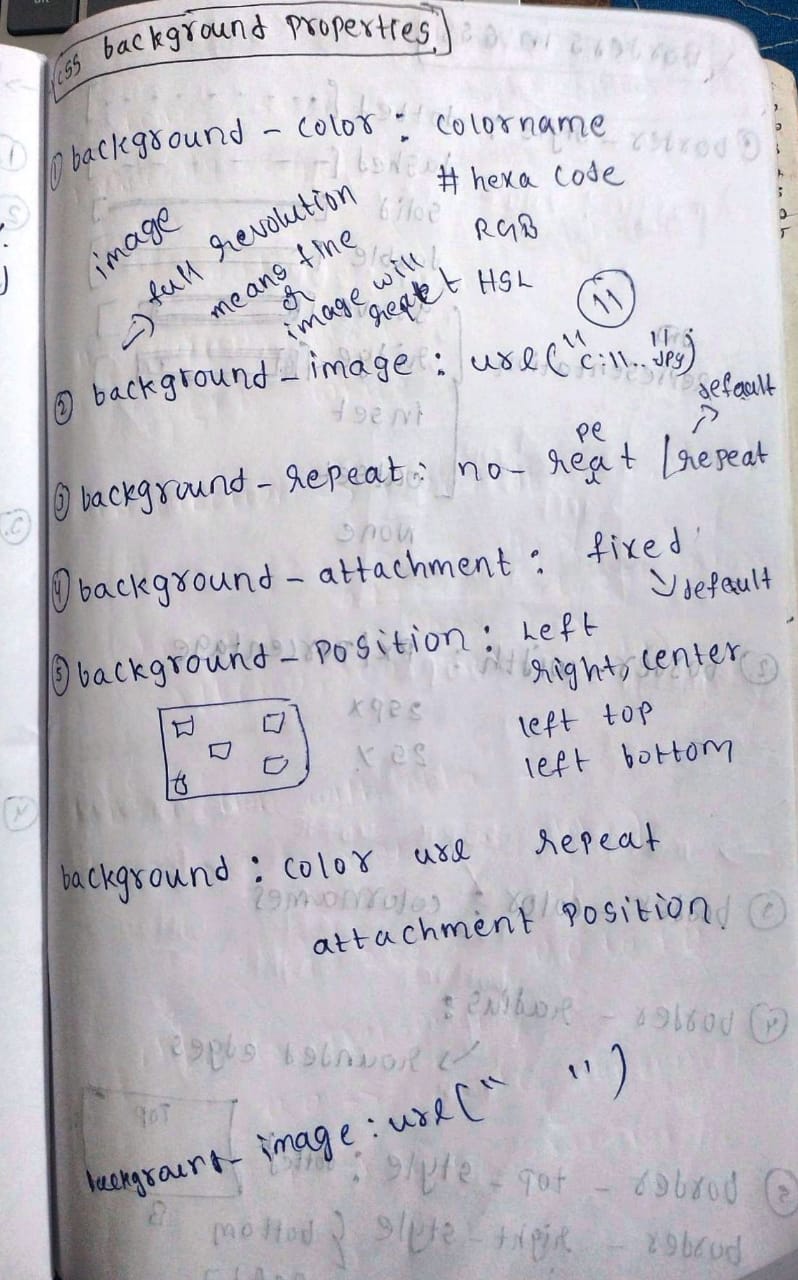 css background properties
① background - color : colorname
# hexa code
RGB
HSL
image
→ full revolution
means fine
or
image will
repeat
11
② background - image : url("C:\\...JPG")
default
③ background - repeat : no - repeat / repeat
④ background - attachment : fixed
default
⑤ background - position : Left
right, center
left top
left bottom
background : color url repeat
attachment position.
background - image : url(" ")